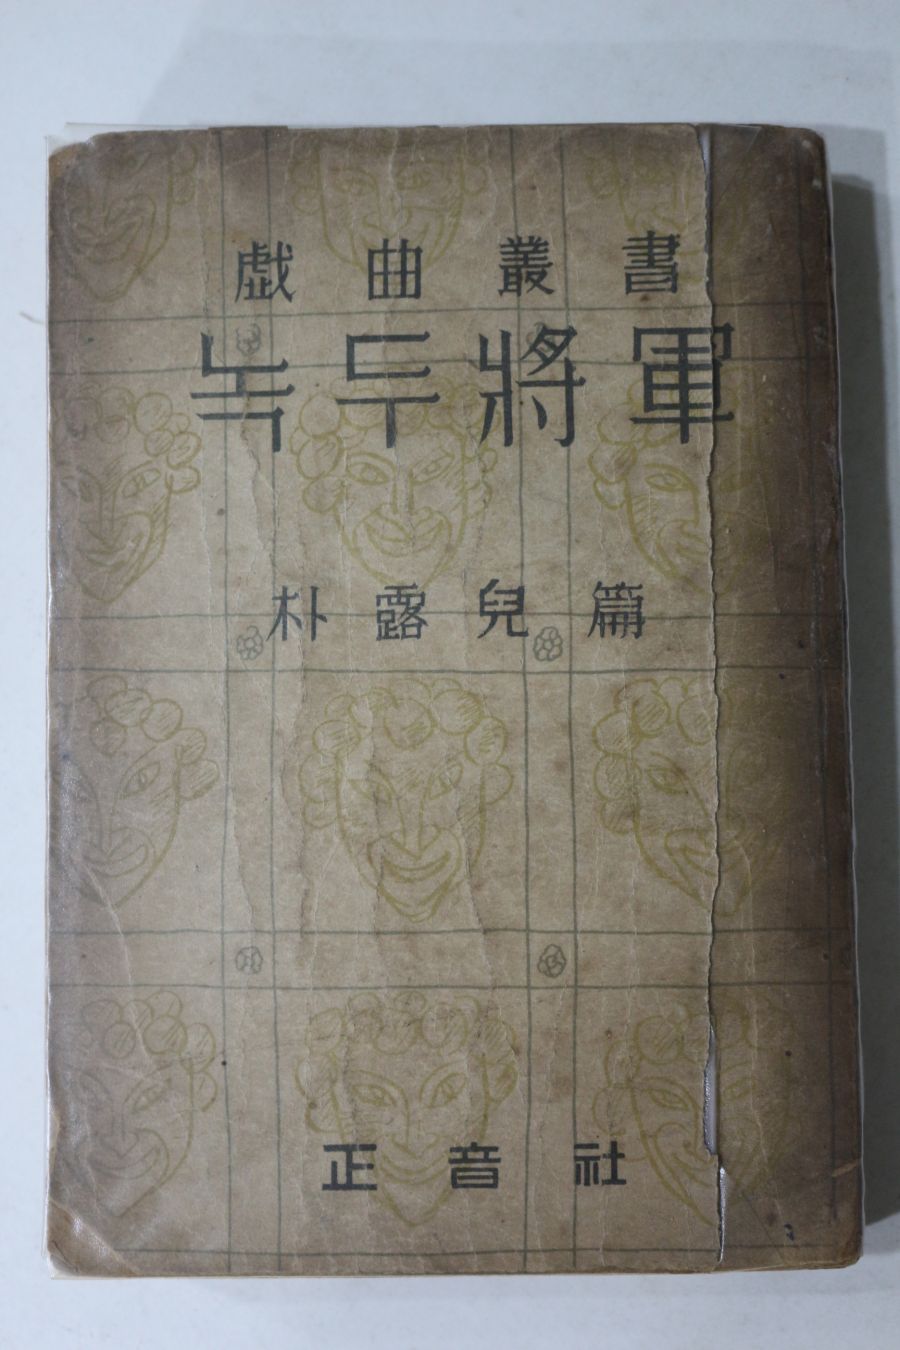 戱曲叢書
녹두將軍
朴露兒篇
正音社